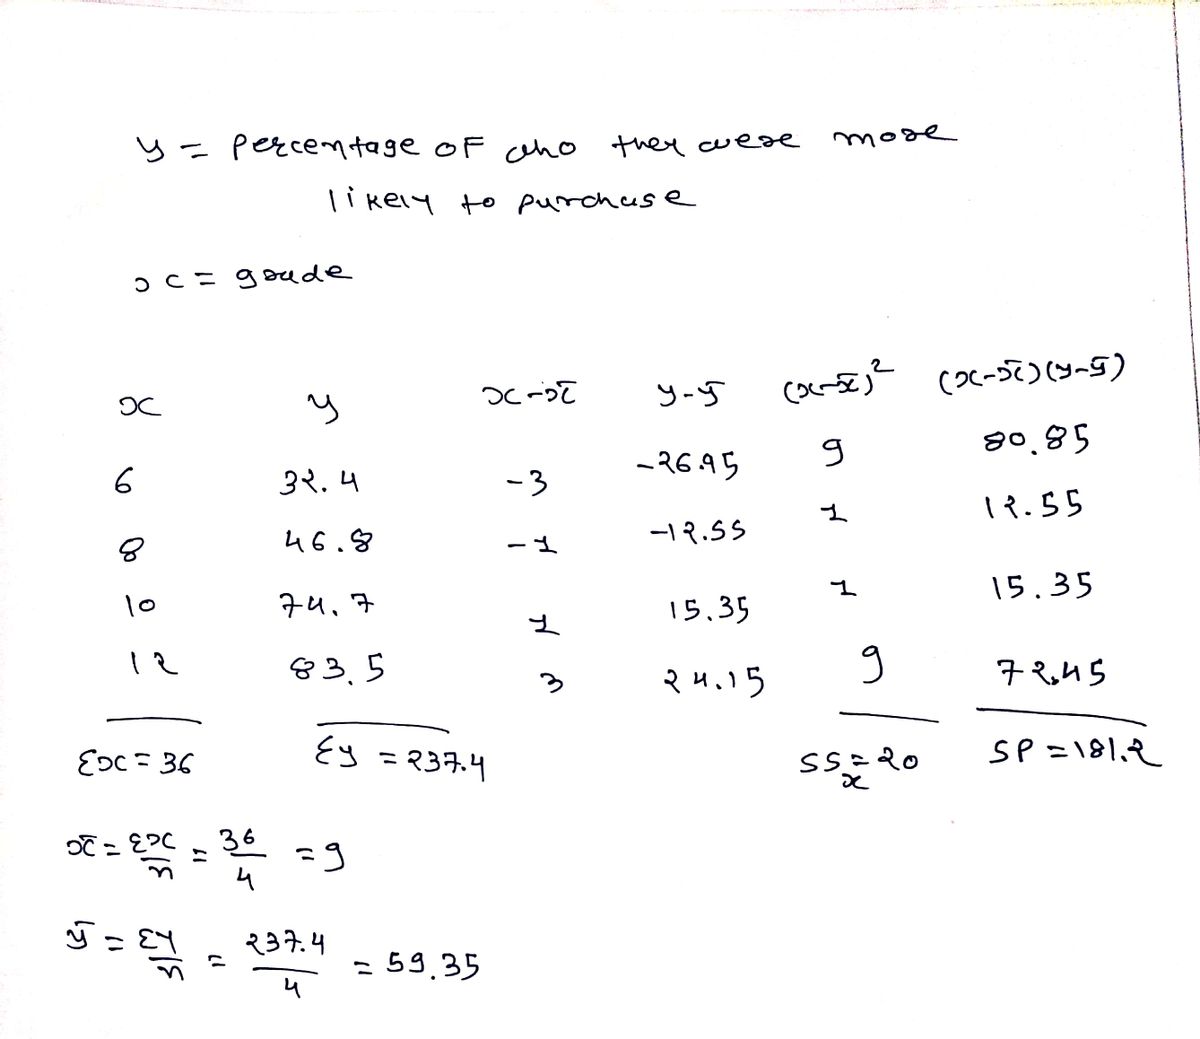 y = percentage of who they were more
likely to purchase
x = grade
x y x-x̄ y-ȳ (x-x̄)² (x-x̄)(y-ȳ)
6 32.4 -3 -26.95 9 80.85
8 46.8 -1 -12.55 1 12.55
10 74.7 1 15.35 1 15.35
12 83.5 3 24.15 9 72.45
Σx = 36 Σy = 237.4 SSx = 20 SP = 181.2
x̄ = Σx/n = 36/4 = 9
ȳ = Σy/n = 237.4/4 = 59.35